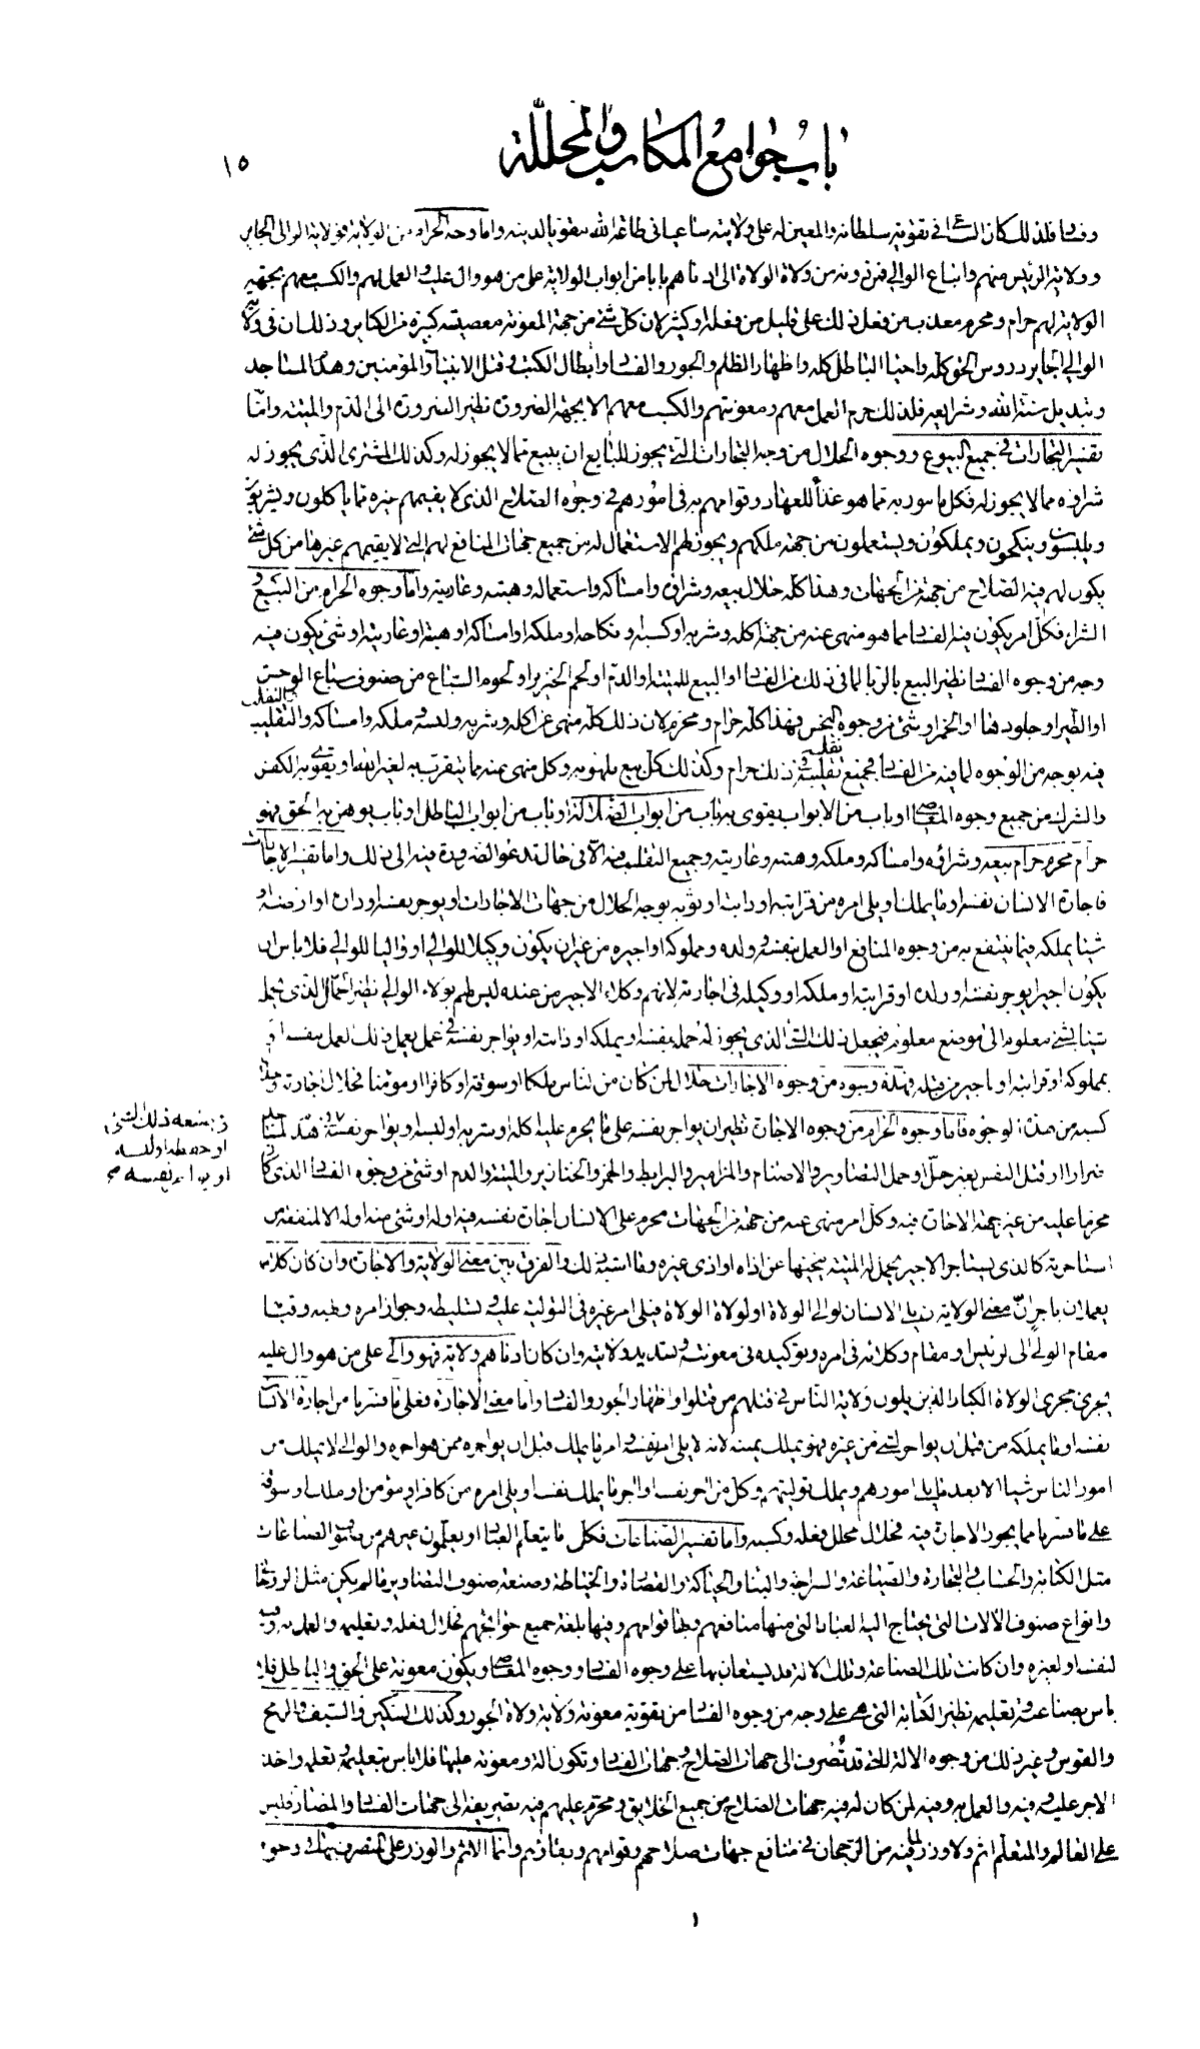 باب جوامع المكاسب والمحللة
١٥
وفسا فلذلك كان الساعي في تقوية سلطانه والمعين له على ولايته ساعيا في طاعة الله مقويا لدينه واما وجه الحرام من الولاية فولاية الوالي الجاير
وولاية الرئيس منهم واتباع الوالي فمن دونه من ولاة الولاة الى ادناهم بابا من ابواب الولاية على من هو وال عليه والعمل لهم والكسب معهم بجهة
الولاية لهم حرام ومحرم معذب من فعل ذلك على قليل من فعله وكثير لان كل شئ من جهة المعونة معصية كبيرة من الكبائر وذلك ان في ولاية
الوالي الجاير دروس الحق كله واحيا الباطل كله واظهار الظلم والجور والفسا وابطال الكتب وقتل الانبيا والمؤمنين وهدم المساجد
وتبديل سنة الله وشرايعه فلذلك حرم العمل معهم ومعونتهم والكسب معهم الا بجهة الضرورة نظير الضرورة الى الدم والميتة واما
تفسير التجارات في جميع البيوع ووجوه الحلال من وجه التجارات التي يجوز للبايع ان يبيع مما لا يجوز له وكذلك المشترى الذي يجوز له
شراؤه مما لا يجوز له فكل مامور به مما هو غذا للعباد وقوامهم به في امورهم في وجوه الصلاح الذي لا يقيمهم غيره مما ياكلون ويشربون
ويلبسون وينكحون ويملكون ويستعملون من جهة ملكهم ويجوز لهم الاستعمال له من جميع جهات المنافع لهم التي لا يقيمهم غيرها من كل شئ
يكون لهم فيه الصلاح من جهة من الجهات وهذا كله حلال بيعه وشراؤه وامساكه واستعماله وهبته وعاريته واما وجوه الحرام من البيع و
الشراء فكل امر يكون فيه الفسا مما هو منهي عنه من جهة اكله وشربه او كسبه او نكاحه او ملكه او امساكه او هبته او عاريته او شئ يكون فيه
وجه من وجوه الفسا نظير البيع بالربا لما في ذلك من الفسا او البيع للميتة او الدم او لحم الخنزير او لحوم السباع من صنوف سباع الوحش
او الطير او جلودها او الخمر او شئ من وجوه النجس فهذا كله حرام ومحرم لان ذلك كله منهي عن اكله وشربه ولبسه وملكه وامساكه والتقلب
التقلب
فيه بوجه من الوجوه لما فيه من الفسا فجميع تقلبه في ذلك حرام وكذلك كل بيع ملهو به وكل منهي عنه مما يتقرب به لغير الله او يقوى به الكفر
تقلبه
والشرك من جميع وجوه المعاصي او باب من الابواب يقوى به باب من ابواب الضلالة او باب من ابواب الباطل او باب يوهن به الحق فهو
حرام محرم حرام بيعه وشراؤه وامساكه وملكه وهبته وعاريته وجميع التقلب فيه الا في حال تدعو الضرورة فيه الى ذلك واما تفسير الاجارات
فاجارة الانسان نفسه او ما يملك او يلي امره من قرابته او دابته او ثوبه بوجه الحلال من جهات الاجارات او يوجر نفسه او داره او ارضه او
شيئا يملكه فيما ينتفع به من وجوه المنافع او العمل بنفسه وولده ومملوكه او اجيره من غير ان يكون وكيلا للوالي او واليا للوالي فلا باس ان
يكون اجيرا يوجر نفسه او ولده او قرابته او ملكه او وكيله في اجارته لانهم وكلاء الاجير من عنده ليس لهم بولاء الوالي نظير الحمال الذي يحمل
شيئا بشئ معلوم الى موضع معلوم فيجعل ذلك الشئ الذي يجوز له حمله بنفسه او بملكه او دابته او يواجر نفسه في عمل يعمل ذلك العمل بنفسه او
بمملوكه او قرابته او باجير من قبله فهذه وجوه من وجوه الاجارات حلال لمن كان من الناس ملكا او سوقة او كافرا او مؤمنا فحلال اجارته وحلال
كسبه من هذه الوجوه فاما وجوه الحرام من وجوه الاجارة نظير ان يواجر نفسه على ما يحرم عليه اكله او شربه او لبسه او يواجر نفسه في هدم المساجد
ضرارا او قتل النفس بغير حل او حمل التصاوير والاصنام والمزامير والبرابط والخمر والخنازير والميتة والدم او شئ من وجوه الفسا الذي كان
محرما عليه من غير جهة الاجارة فيه وكل امر منهي عنه من جهة من الجهات محرم على الانسان اجارة نفسه فيه او له او شئ منه او له الا لمنفعة من
استاجرته كالذي يستاجر الاجير يحمل له الميتة ينحيها عن اذاه او اذى غيره وما اشبه ذلك والفرق بين معنى الولاية والاجارة وان كان كلاهما
يعملان باجر ان معنى الولاية ان يلي الانسان لوالي الولاة او لولاة الولاة فيلي امر غيره في التولية عليه وتسليطه وجواز امره ونهيه وقيامه
مقام الولي الى الرئيس او مقام وكلائه في امره وتوكيده في معونته وتسديد ولايته وان كان ادناهم ولاية فهو والي على من هو وال عليه
يجري مجرى الولاة الكبار الذين يلون ولاية الناس في قتلهم من قتلوا واظهار الجور والفسا واما معنى الاجارة فعلى ما فسرنا من اجارة الانسان
نفسه او ما يملكه من قبل ان يواجر لشئ من غيره فهو يملك يمينه لانه لا يلي امر نفسه وامر ما يملك قبل ان يواجره ممن هو اجره والوالي لا يملك من
امور الناس شيا الا بعد ما يلي امورهم ويملك توليتهم وكل من اجر نفسه او اجر ما يملك نفسه او يلي امره من كافر او مؤمن او ملك او سوقة
على ما فسرنا مما يجوز الاجارة فيه فحلال محلل فعله وكسبه واما تفسير الصناعات فكل ما يتعلم العبا او يعلمون غيرهم من صنوف الصناعات
مثل الكتابة والحساب والتجارة والصياغة والسراجة والبنا والحياكة والقصارة والخياطة وصنعة صنوف التصاوير ما لم يكن مثل الروحاني
وانواع صنوف الآلات التي يحتاج اليه العباد التي منها منافعهم وبها قوامهم وفيها بلغة جميع حوائجهم فحلال فعله وتعليمه والعمل به وفيه
لنفسه او لغيره وان كانت تلك الصناعة وتلك الالة قد يستعان بها على وجوه الفسا ووجوه المعاصي ويكون معونة على الحق والباطل فلا
باس بصناعته وتعليمه نظير الكتابة التي هي على وجه من وجوه الفسا من تقوية معونة ولاية ولاة الجور وكذلك السكين والسيف والرمح
والقوس وغير ذلك من وجوه الالة التي قد تصرف الى جهات الصلاح وجهات الفسا وتكون الة ومعونة عليها فلا باس بتعليمه وتعلمه واخذ
الاجر عليه وفيه والعمل به وفيه لمن كان له فيه جهات الصلاح من جميع الخلايق ومحرم عليهم فيه تصريفه الى جهات الفسا والمضار فليس
على العالم والمتعلم اثم ولا وزر لما فيه من الرجحان في منافع جهات صلاحهم وقوامهم وبقائهم وانما الاثم والوزر على المتصرف بها في وجوه
او حفظه او لبسه
١